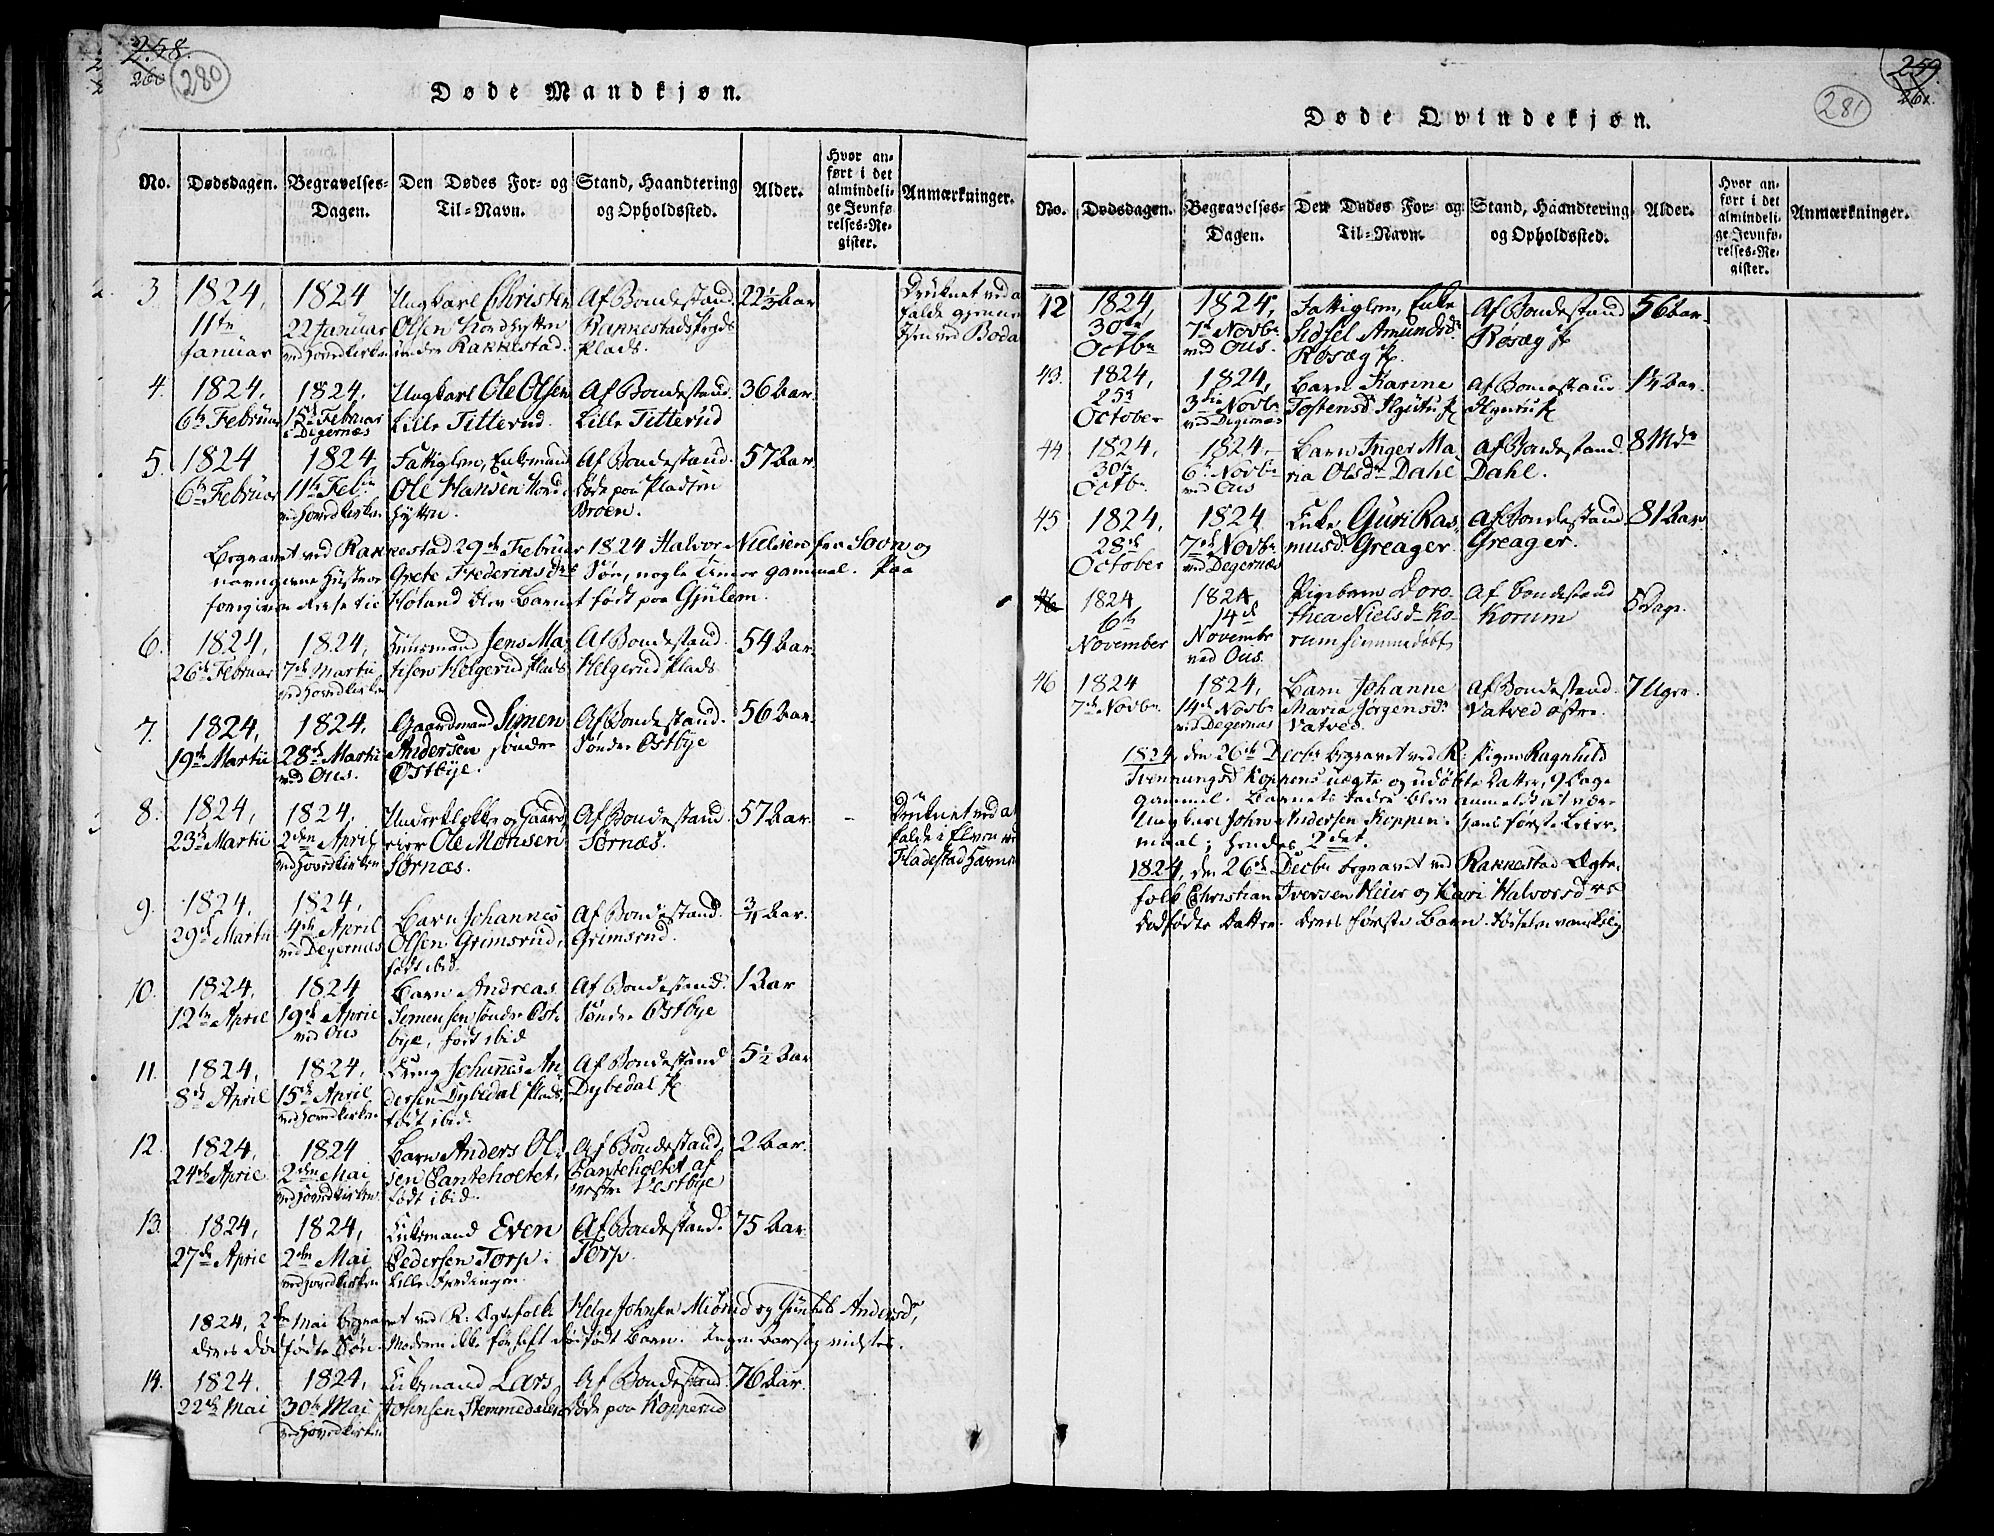 258.
260
280
Døde Mandkjøn.
No.
Dødsdagen.
Begravelses-
Dagen.
Den Dødes For- og
Til-Navn.
Stand, Haandtering
og Opholdssted.
Alder.
Hvor an-
ført i det
almindeli-
ge Jevnfø-
relses-Re-
gister.
Anmærkninger.
3.
1824,
11te
Januar
1824
22 Januar
ved Hovedkirken
Ungkarl Christen
Olsen Nordhytten
under Rakkestad.
Af Bondestand.
Rakkestads
Plads.
22½ Aar
Druknet ved a
falde gjennem
4.
1824,
6te Februar
1824,
15de Februar
i Degernæs
Ungkarl Ole Olsen
Lille Titterud.
Af Bondestand.
Lille Titterud
36 Aar.
5.
1824
6te Februar
1824
11te Feb.
ved Hovedkirken
Fattiglem, Enkemand
Ole Hansen Nord-
hytten.
Af Bondestand.
Døde paa Pladsen
Broen.
57 Aar.
Begravet ved Rakkestad 29de Februar 1824 Halvor Nielsens fra Sovn og
Hustroe Grete Frederiksdtr Søn, nogle Timer gammel. Paa
Reise til Høland blev Barnet født paa Gjulem.
6.
1824,
26de Februar
1824,
7de Martii
ved Hovedkirken
Enkemand Jens Ma-
thisen Helgerud Plads
Af Bondestand.
Helgerud Plads
54 Aar.
7.
1824,
19de Martii
1824,
28de Martii
ved Ous.
Gaardmand Simen
Andersen søndre
Østbye.
Af Bondestand.
Søndre Østbye
56 Aar.
8.
1824,
23de Martii
1824,
2den April
ved Hovedkirken
Underklokker og Gaard-
eier Ole Monsen
Sørnæs.
Af Bondestand.
Sørnæs.
57 Aar.
Druknet ved at
falde i Elven ved
Fladestad
9.
1824,
29de Martii
1824,
4de April
ved Degernæs
Barn Johannes
Olsen Grimsrud,
født ibid.
Af Bondestand.
Grimsrud.
¾ Aar.
10.
1824,
12te April
1824
19de April
ved Ous
Barn Andreas
Simensen søndre Øst-
bye, født ibid
Af Bondestand.
Søndre Østbye
1 Aar
11.
1824,
8de April
1824,
15de April
ved Hovedkirken
Dreng Johannes An-
dersen Dybedal Plads,
født ibid.
Af Bondestand
Dybedal Pl
5½ Aar
12.
1824,
24de April
1824
2den Mai
ved Hovedkirken
Barn Anders Ol-
sen Danseholtet,
født ibid.
Af Bondestand
Danseholtet af
vestre Vestbye
2 Aar.
13.
1824,
27de April
1824,
2den Mai
ved Hovedkirken
Enkemand Even
Pedersen Torp i
Lille
Af Bondestand.
Torp.
75 Aar.
1824, 2den Mai begravet ved R. Ægtefolk Helge Johnsen Miørud og Gunhild Andersdr,
deres dødfødte Søn. Moderen ikke før havt dødfødt Barn. Ingen
14.
1824.
22de Mai
1824,
30te Mai
ved Hovedkirken
Enkemand Lars
Johnsen Stemmedalen
Af Bondestand.
Døde paa Kopperud
76 Aar.
259.
261.
281
Døde Qvindekjøn.
No.
Dødsdagen.
Begravelses-
Dagen.
Den Dødes For- og
Til-Navn.
Stand, Haandtering
og Opholdssted.
Alder.
Hvor an-
ført i det
almindeli-
ge Jevnfø-
relses-Re-
gister.
Anmærkninger.
42
1824,
30te
Octbr
1824,
7de Novbr
ved Ous.
Fattiglem, Enke
Sidsel Amundsdr
Røsæg Pl.
Af Bondestand
Røsæg Pl
56 Aar.
43.
1824,
25de
October
1824,
3die Novbr
ved Degernæs
Barn Karine
Tostensd.
Af Bondestand.
1¼ Aar.
44
1824,
30te
Octbr.
1824.
6te Novbr
ved Ous
Barn Inger Ma-
ria Olsdr Dahl
Af Bondestand.
Dahl.
8 Mdr
45
1824,
28de
October
1824
7de Novbr
ved Degernæs
Enke Guri Ras-
musd. Greager.
Af Bondestand
Greager.
81 Aar
46
1824
6te
November
1824
14de
Novembr
ved Ous.
Pigebarn Doro-
thea Nielsdr Ko-
rum hjemmedøbt
Af Bondestand
Korum
5 Dage.
46
1824
7de Novbr.
1824,
14de Novbr
ved Degernæs
Barn Johanne
Maria Jørgensdr
Vatved
Af Bondestand.
Vatved østre.
7 Uger.
1824, den 26de Decbr begravet ved R: Pigen Ragnhild
Svenningsd Koppens uægte og udøbte Datter, 9 Dage
gammel. Barnets Fader blev anmeldt at være
Ungkarl John Andersen Koppen. Hans første Leier-
maal; hendes 2det.
1824, den 26de Decbr begravet ved Rakkestad Ægte-
folk Christian Iversen Heier og Kari Halvorsdrs
dødfødte Datter. Deres første Barn. Fødselen vanskelig